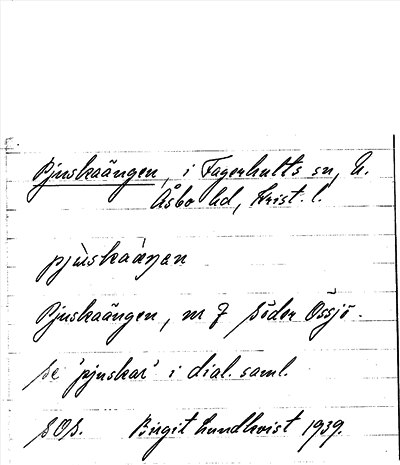 Pjuskaängen, i Fagerhults sn, N.
Åsbo hd, Krist. l.
pjùskaäŋan
Pjuskaängen, m 7 Söder Össjö.
Se 'pjuskar' i dial. saml.
SOS. Birgit Lundkvist 1939.